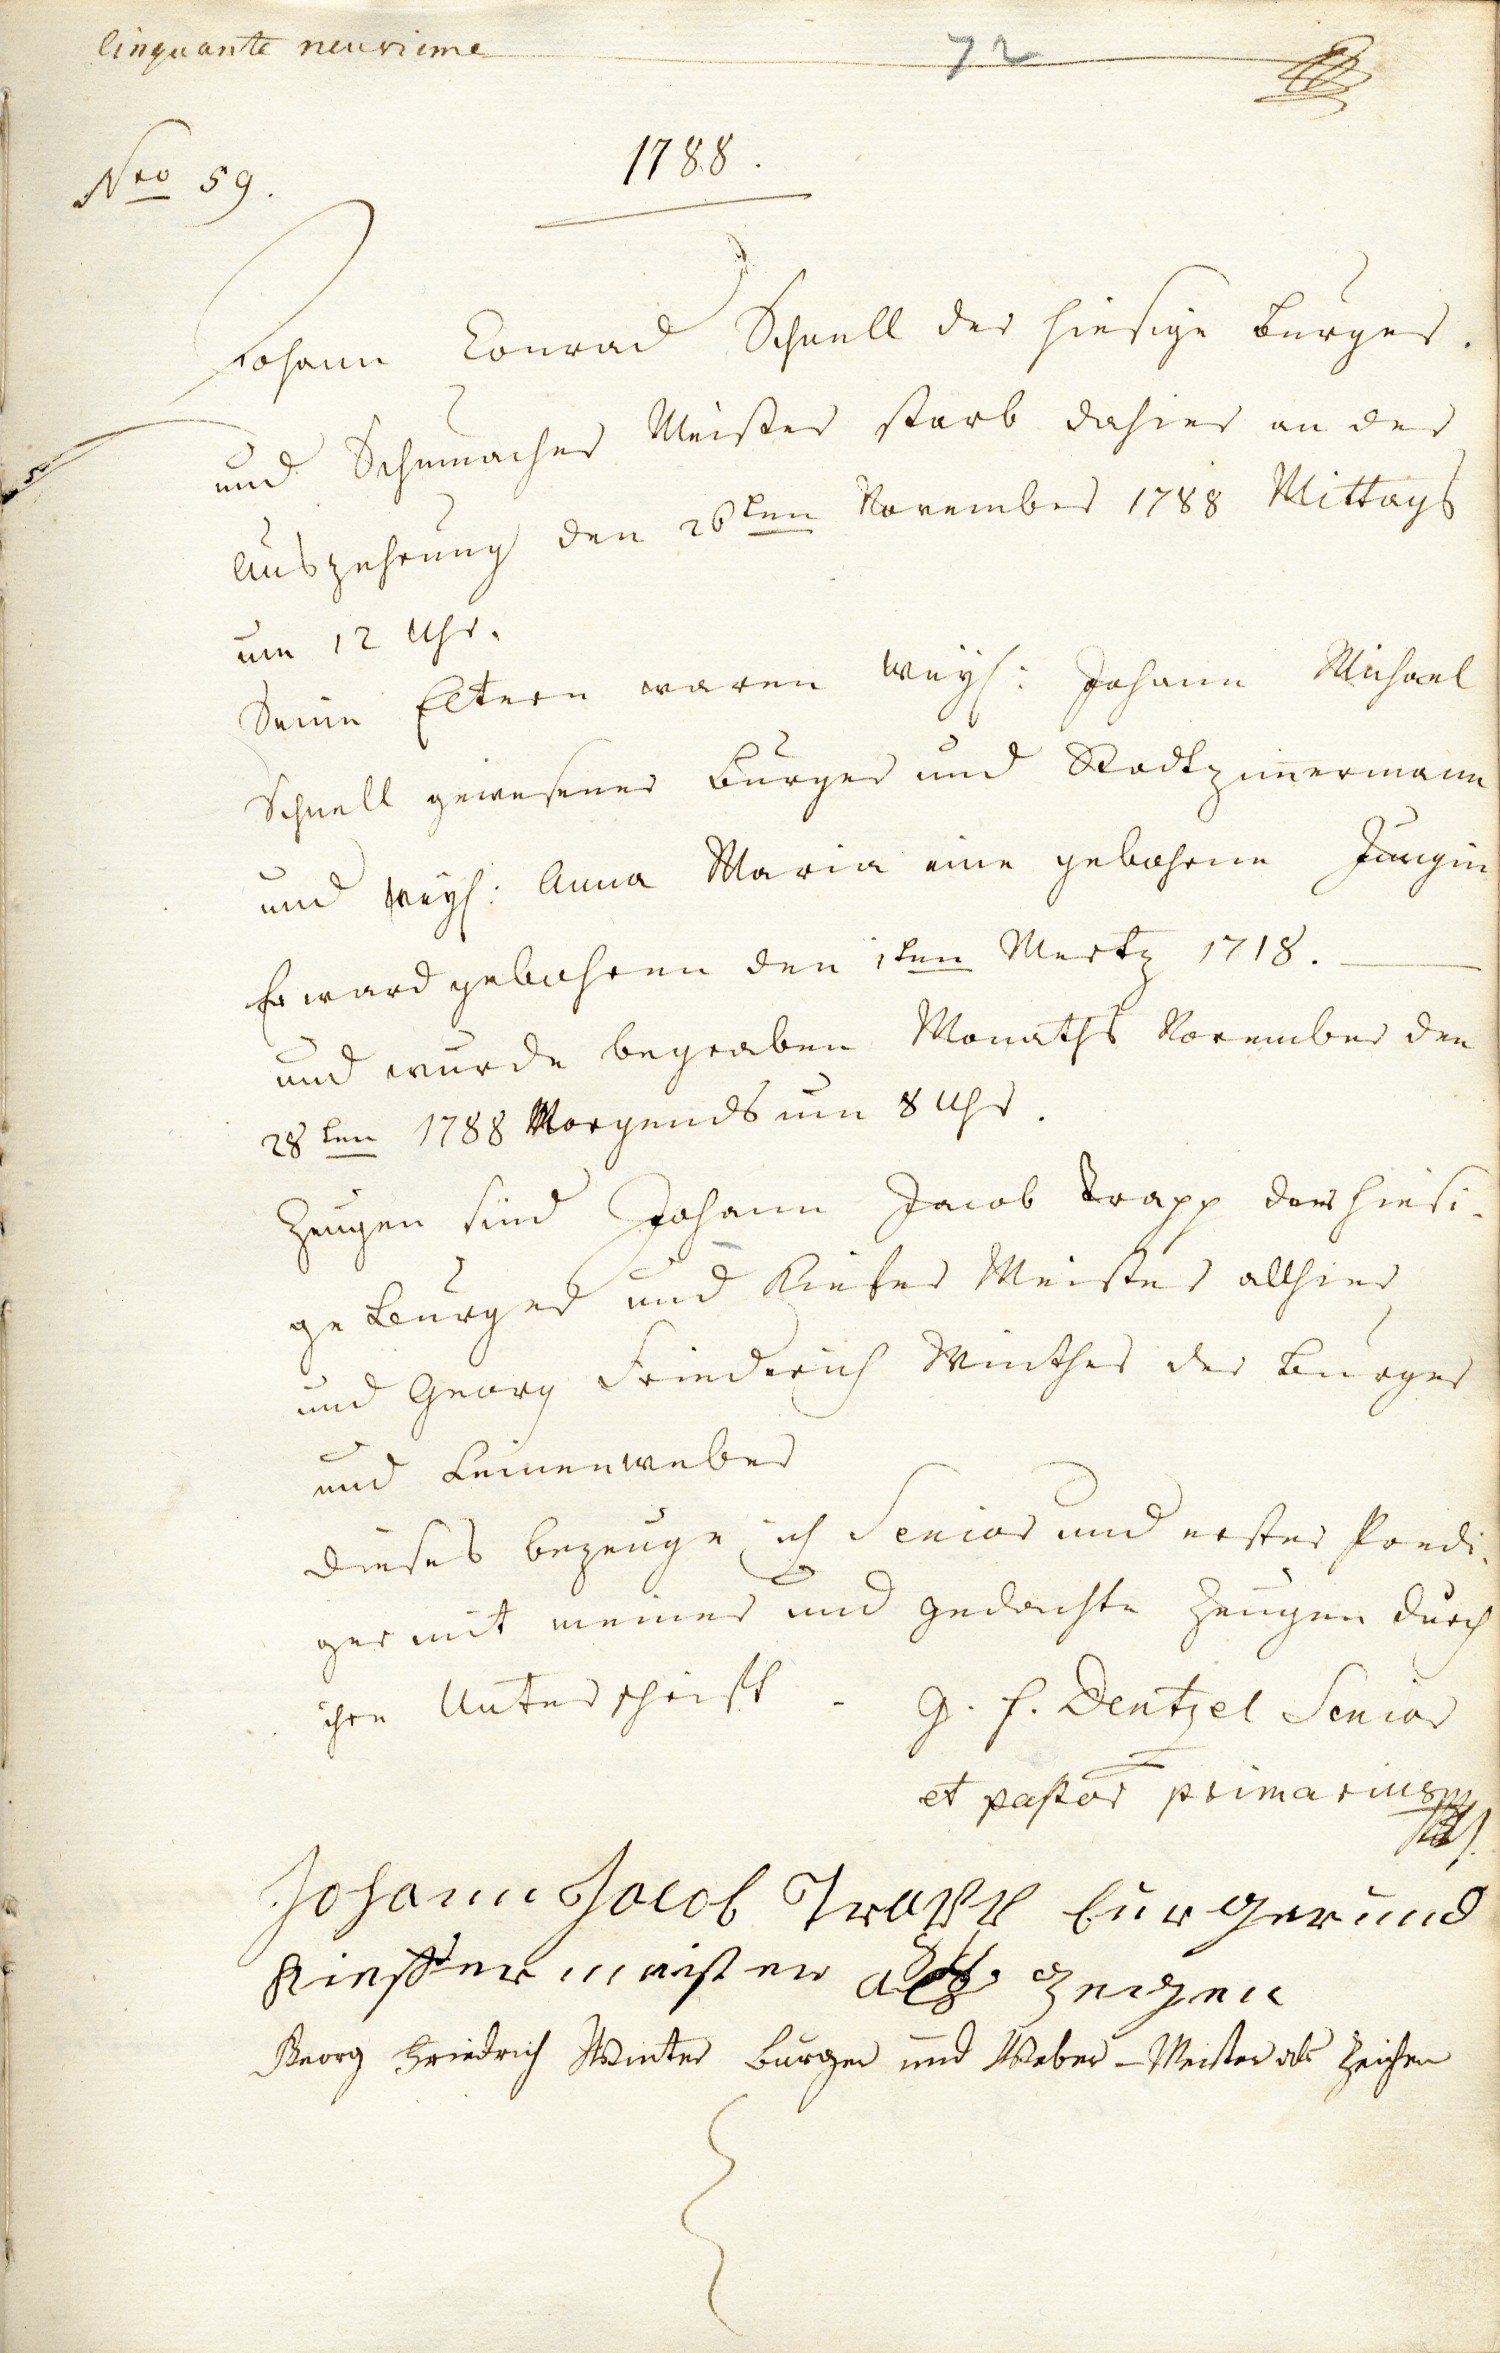 Cinquante neuvieme
72
Nro 59.
1788.
Johann Conrad Schnell der hiesige Burger
und Schumacher Meister starb dahier an der
Auszehrung den 26ten November 1788 Mittags
um 12 Uhr.
Seine Eltern waren weyl: Johann Michael
Schnell gewesener Burger und Stadtzimmermann
und weyl: Anna Maria eine gebohrne Jungin
Er ward gebohren den 1ten Mertz 1718.
und wurde begraben Monaths November den
28ten 1788 Morgends um 8 Uhr.
Zeugen sind Johann Jacob Trapp der hiesi-
ge Burger und Kiefer Meister allhier
und Georg Friederich Winther der Burger
und Leinenweber
Dieses bezeuge ich Senior und erster Predi-
ger mit meiner und gedachte Zeugen durch
ihre Unterschrift -
G. F. Dentzel Senior
et pastor primarius
Johann Jacob Trapp burger und
Kieffer meister als zeigen
Georg Friedrich Winter burger und Weber-Meister als Zeichen